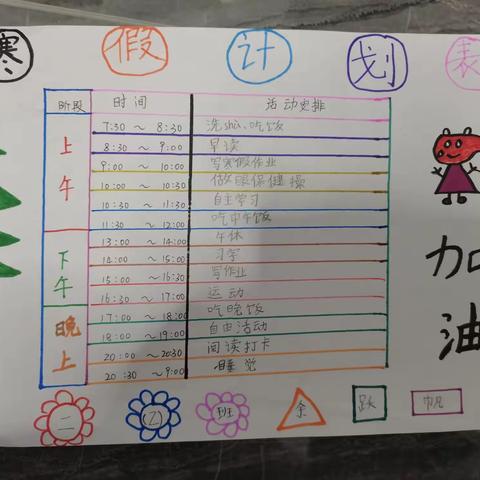 寒假计划表
阶段 时间 活动安排
上午
7:30 ~ 8:30 洗shù、吃饭
8:30 ~ 9:00 早读
9:00 ~ 10:00 写寒假作业
10:00 ~ 10:30 做眼保健操
10:30 ~ 11:30 自主学习
11:30 ~ 12:00 吃中午饭
下午
13:00 ~ 14:00 午休
14:00 ~ 15:00 习字
15:00 ~ 16:30 写作业
16:30 ~ 17:00 运动
晚上
17:00 ~ 18:00 吃晚饭
18:00 ~ 19:00 自由活动
20:00 ~ 20:30 阅读打卡
20:30 ~ 9:00 睡觉
加油
二 (2) 班 余 跃 帆